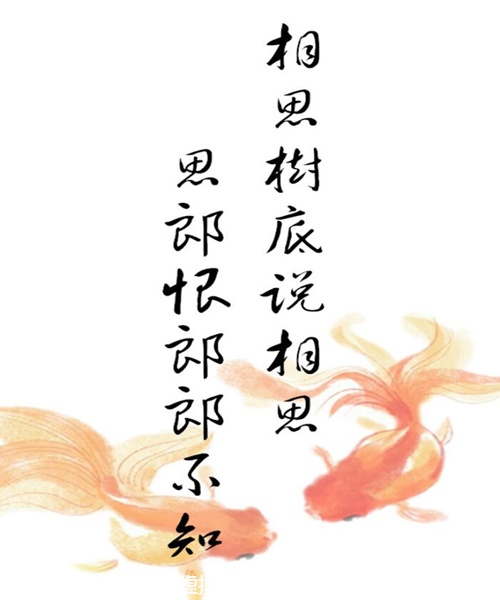 相思樹底说相思
思郎恨郎郎不知